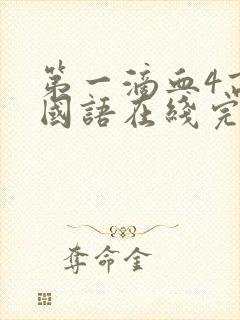 第一滴血4高
國語在綫完
奪命金